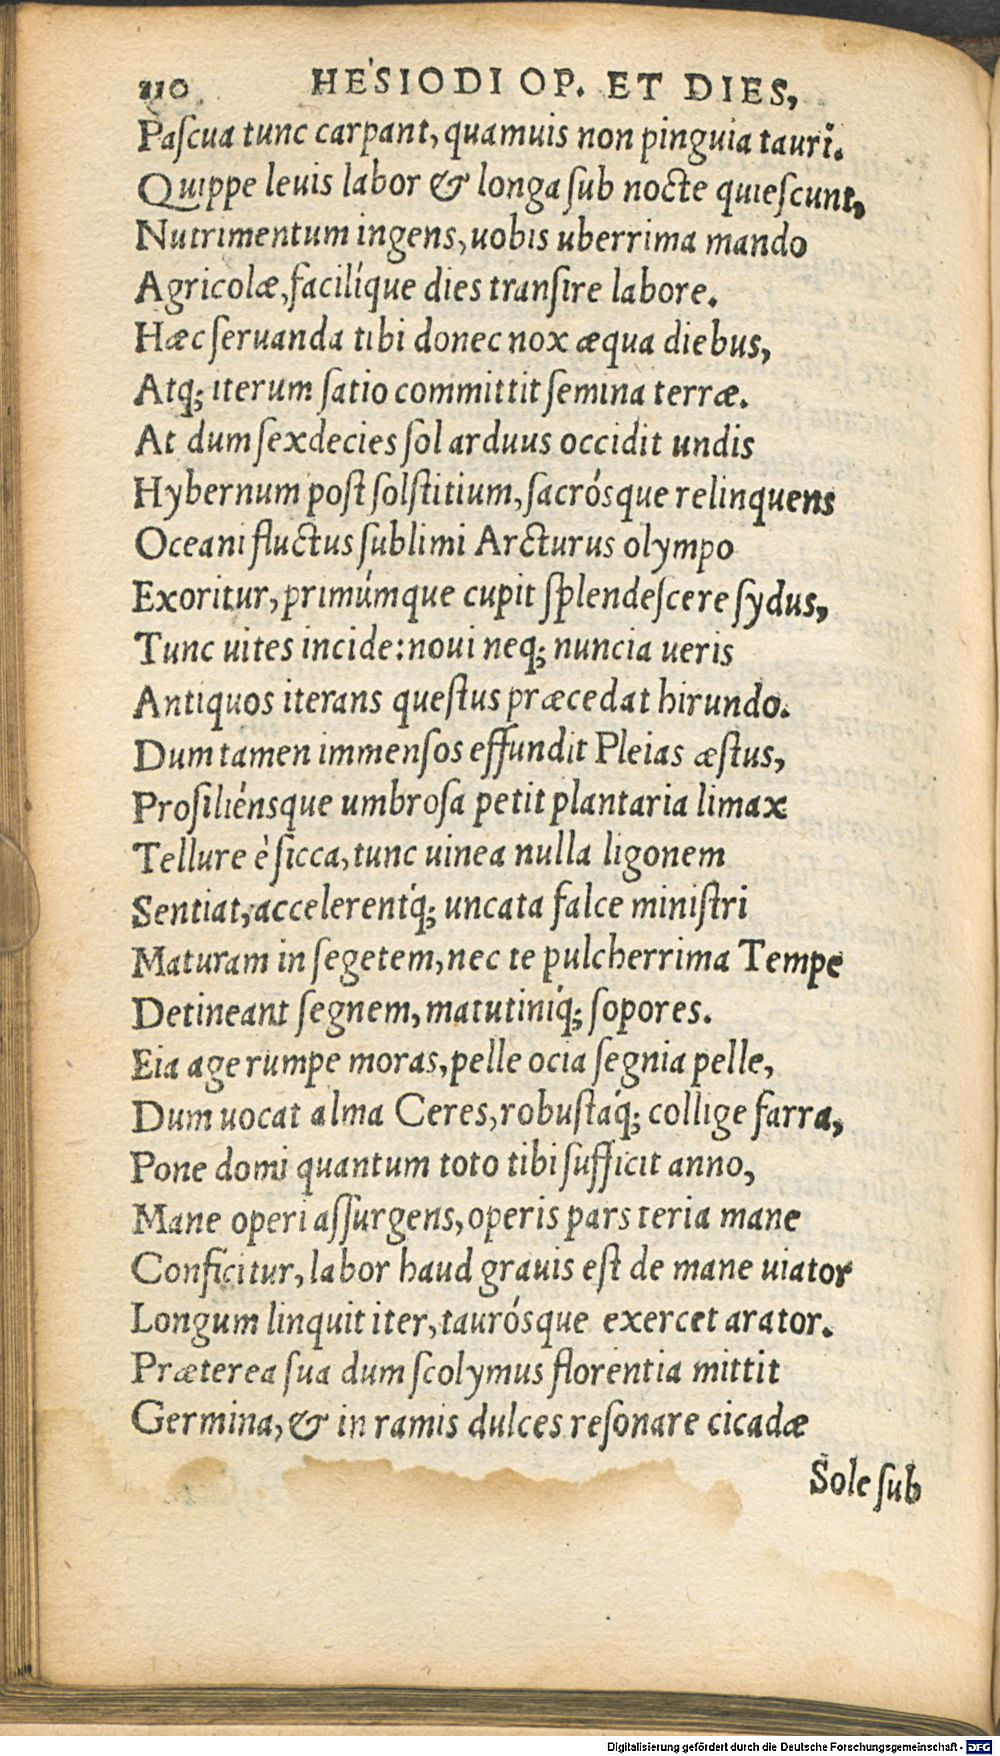 110 HESIODI OP. ET DIES,
Paſcua tunc carpant, quamuis non pinguia tauri.
Quippe leuis labor & longa ſub nocte quieſcunt,
Nutrimentum ingens, uobis uberrima mando
Agricolæ, facilíque dies tranſire labore.
Hæc ſeruanda tibi donec nox æqua diebus,
Atq; iterum ſatio committit ſemina terræ.
At dum ſexdecies ſol arduus occidit undis
Hybernum poſt ſolſtitium, ſacrósque relinquens
Oceani fluctus ſublimi Arcturus olympo
Exoritur, primúmque cupit ſplendeſcere ſydus,
Tunc uites incide: noui neq; nuncia ueris
Antiquos iterans queſtus præcedat hirundo.
Dum tamen immenſos effundit Pleias æſtus,
Proſiliénsque umbroſa petit plantaria limax
Tellure è ſicca, tunc uinea nulla ligonem
Sentiat, accelerent́q; uncata falce miniſtri
Maturam in ſegetem, nec te pulcherrima Tempe
Detineant ſegnem, matutiníq; ſopores.
Eia age rumpe moras, pelle ocia ſegnia pelle,
Dum uocat alma Ceres, robuſtáq; collige farra,
Pone domi quantum toto tibi ſufficit anno,
Mane operi aſſurgens, operis pars teria mane
Conficitur, labor haud grauis eſt de mane uiator
Longum linquit iter, taurósque exercet arator.
Præterea ſua dum ſcolymus florentia mittit
Germina, & in ramis dulces reſonare cicadæ
Sole ſub
Digitalisierung gefördert durch die Deutsche Forschungsgemeinschaft - DFG